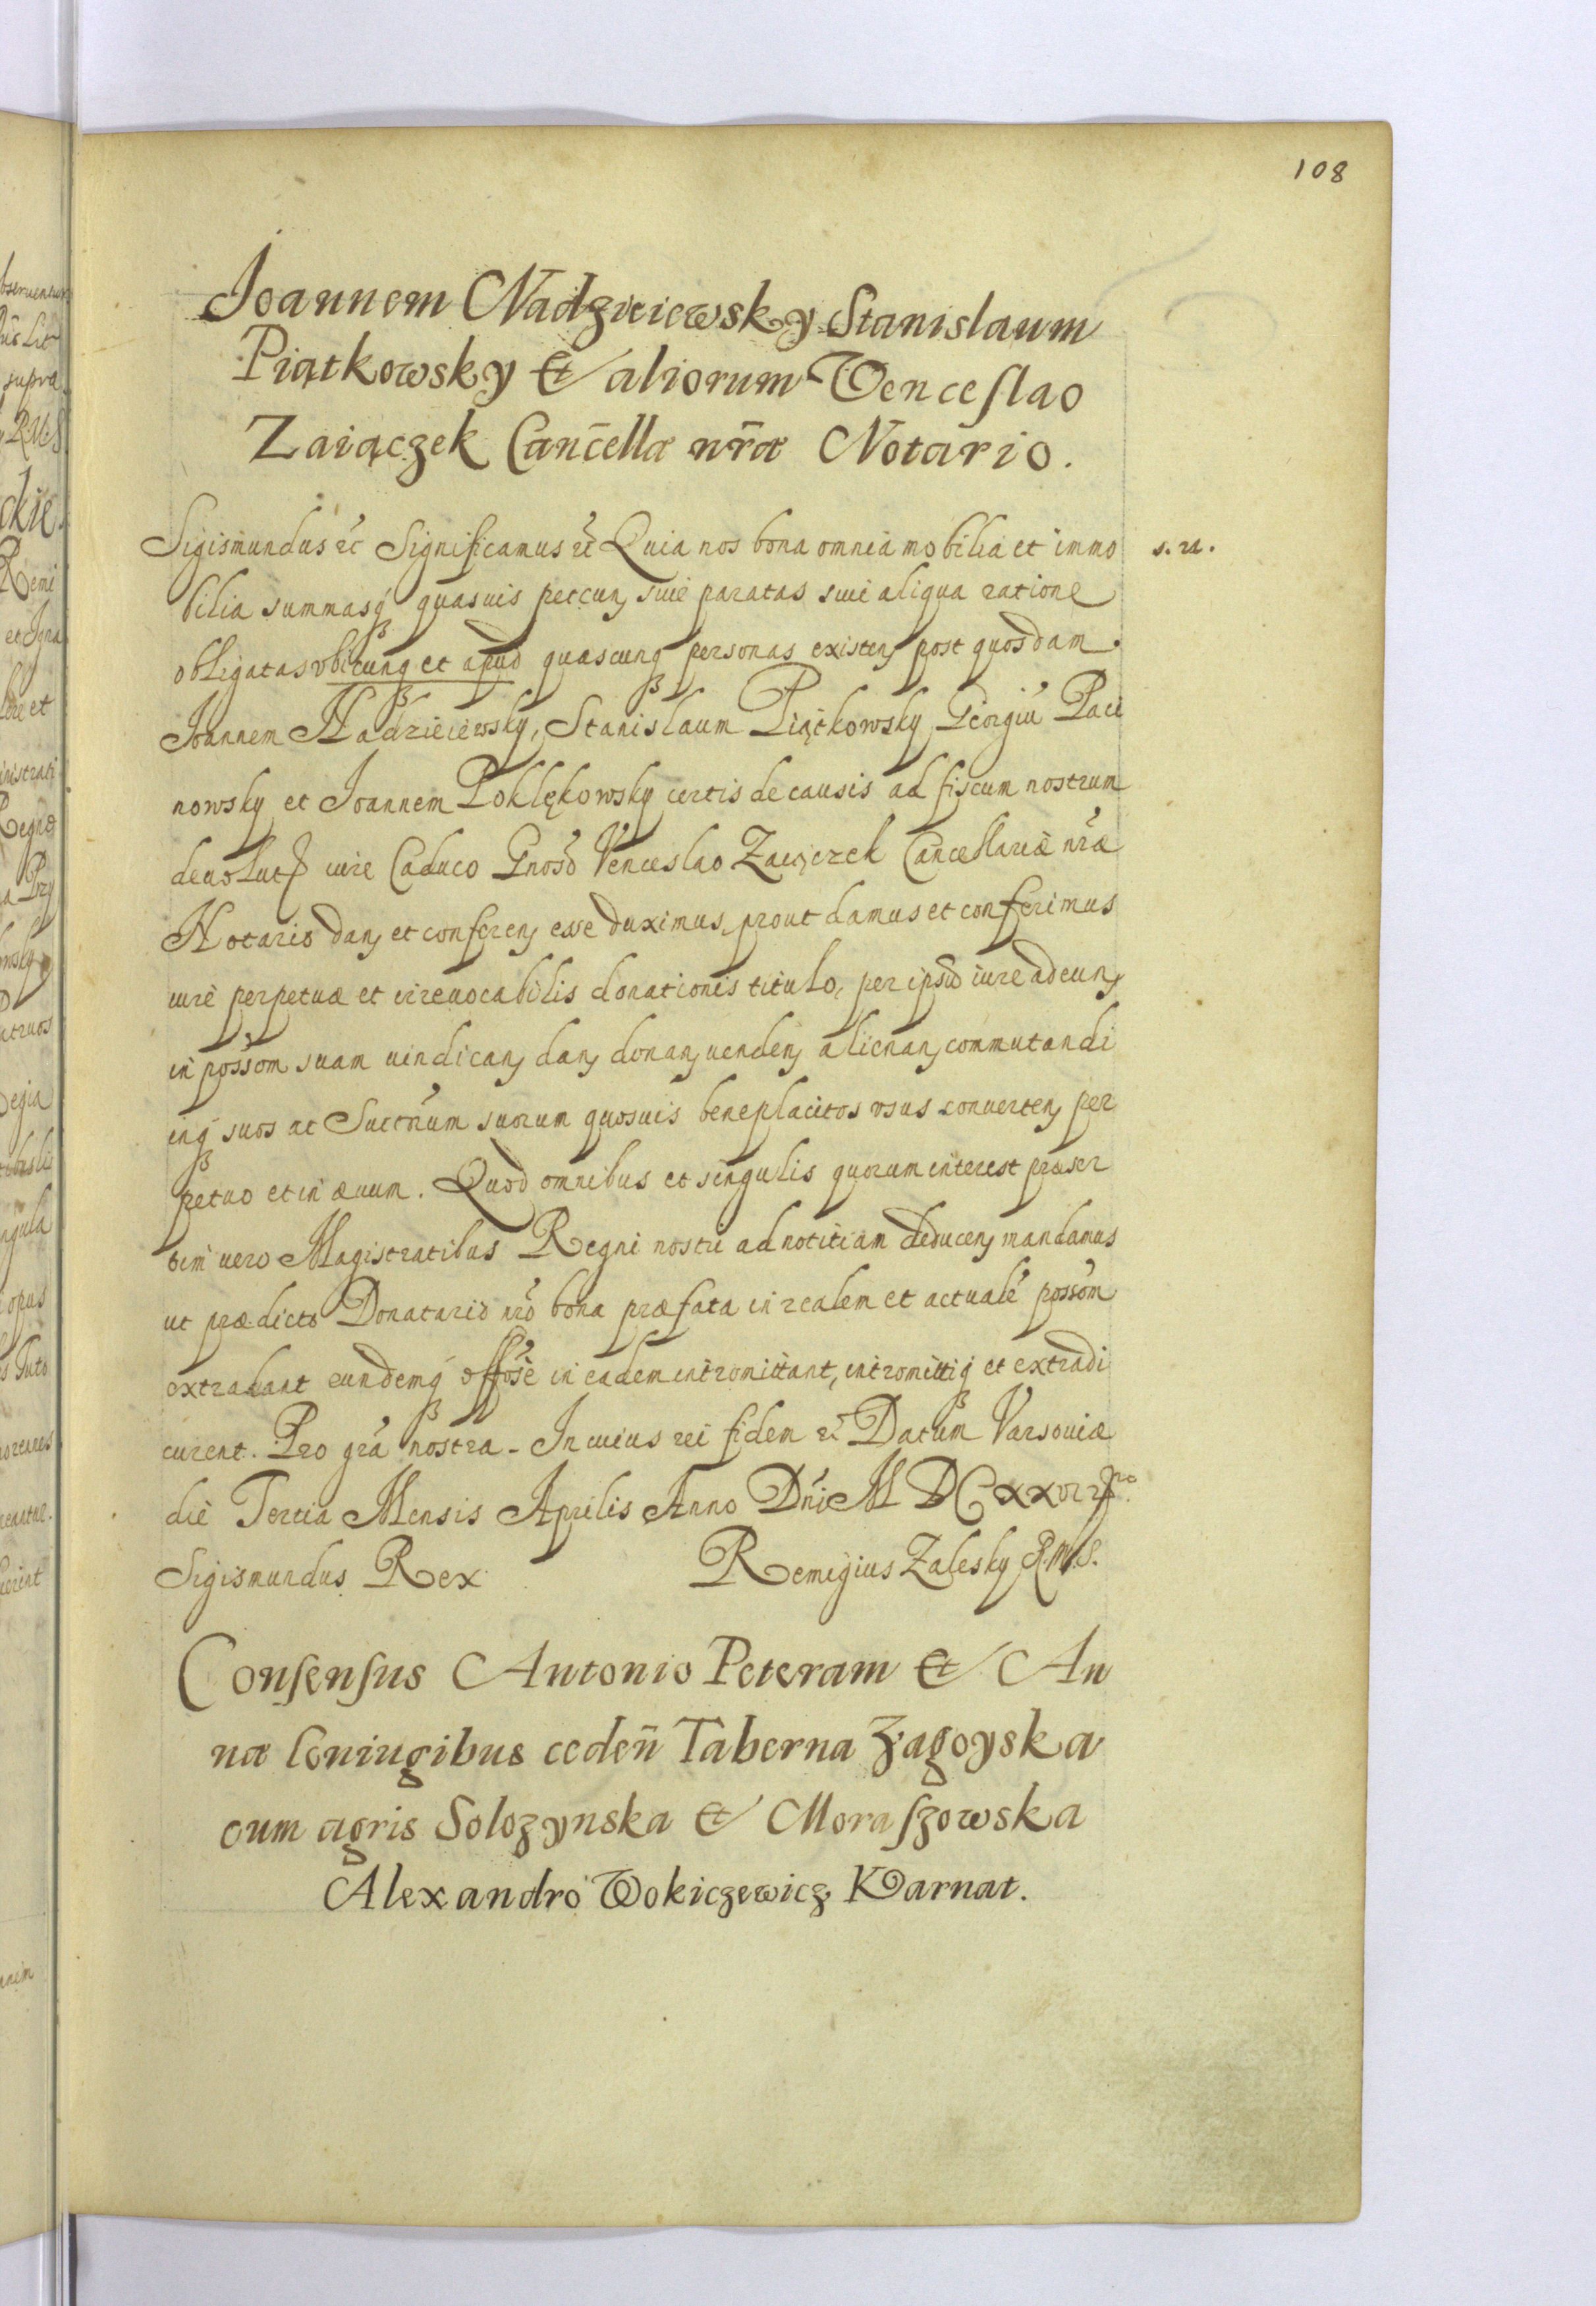 108
Joannem Nadzieiewsky Stanislaum
Piątkowsky & aliorum Wenceslao
Zaiączek Canc̄ellæ nr̄æ Notario.
Sigismundus etc Significamus etc Quia nos bona omnia mobilia et immo s. u.
bilia summasq₃ quasuis petcun₃ siue paratas siue aliqua ratione
obligatas vbicunq₃ et apud quascunq₃ personas existen₃ post quosdam
Joannem Nadzieiewsky, Stanislaum Piątkowsky Georgiū Paci
nowsky et Joannem Poklękowsky certis de causis ad fiscum nostrum
deuolut iure Caduco Gnoso Venceslao Zaiączek Cancellariæ nr̄æ
Notario dan₃ et conferen₃ esse duximus, prout damus et conferimus
iure perpetuæ et irreuocabilis donationis titulo, per ipsū iure adeun₃
in possom suam uindican₃ dan₃ donan₃ uenden₃ alienan₃ commutandi
inq₃ suos ac Succrum suorum quosuis beneplacitos vsus conuerten₃ per
petuo et in æuum. Quod omnibus et singulis quorum interest præser
tim uero Magistratibus Regni nostri ad notitiam deducen₃ mandamus
ut prædicto Donatario nr̄o bona præfata in realem et actualē possom
extradant eundemq₃ offose in eadem intromittant, intromittiq₃ et extradi
curent. Pro grā nostra. In cuius rei fidem etc Datum Varsouiæ
die Tertia Mensis Aprilis Anno Dn̄i
Sigismundus Rex Remigius Zalesky R.M.S.
Consensus Antonio Peteram & An
næ Coniugibus ceden̄ Taberna Zagoyska
cum agris Solozynska & Moraszowska
Alexandro Wokiczewicz Karnat.